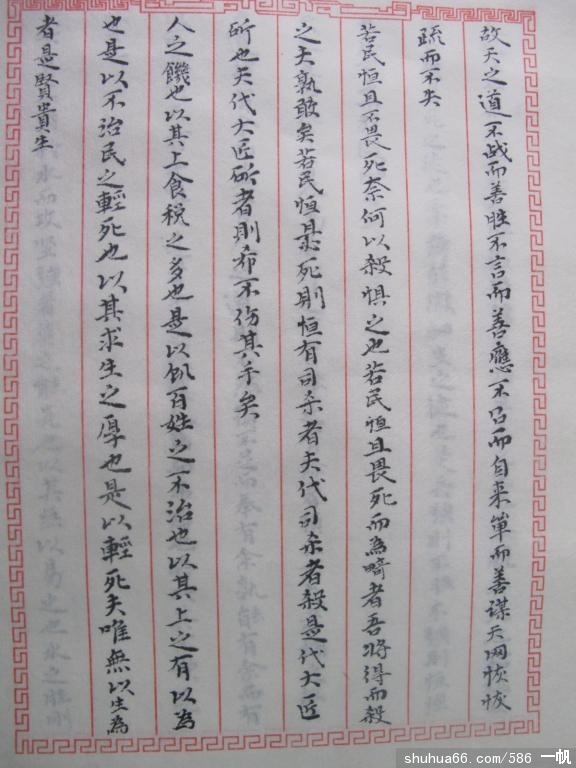 故天之道不战而善胜不言而善應不召而自来單而善谋天网恢恢
疏而不失
若民恒且不畏死奈何以殺惧之也若民恒且畏死而為畸者吾将得而殺
之夫孰敢矣若民恒且必死則恒有司杀者夫代司杀者殺是代大匠
斫也夫代大匠斫者則希不伤其手矣
人之饑也以其上食税之多也是以飢百姓之不治也以其上之有以為
也是以不治民之輕死也以其求生之厚也是以輕死夫唯無以生為
者是賢貴生
shuhua66.com/586 一帆